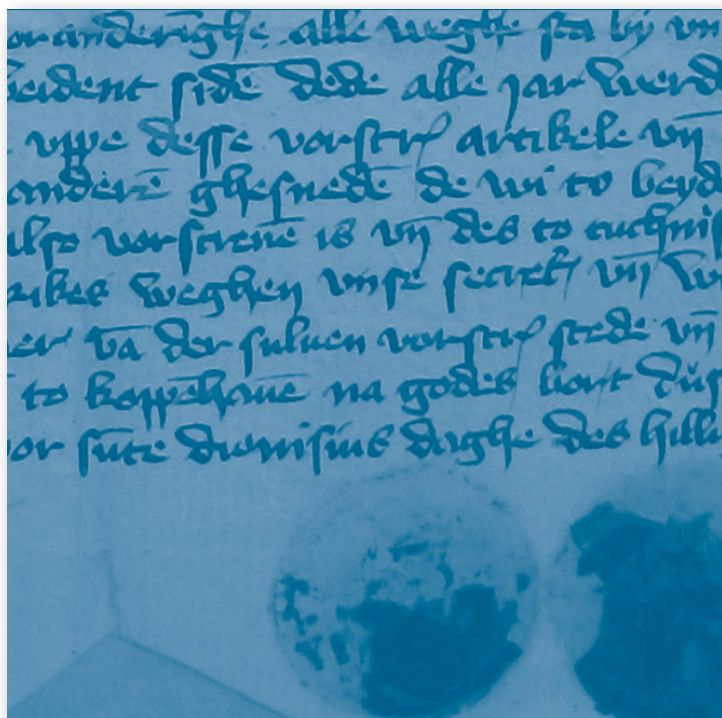 voranderinghe alle weghe sta by vnn
beident sidē dede alle jar werd
vppe desse vorscr artikele vn̄
anderē ghesnedē de wi to beyd
also vorscreuē is vn̄ des to tuchnis
rikes weghen vnse secret vn̄ w
er vā der suluen vorscr stede vn̄
to koppēhauē na godes bort dus
vor sūte dionisius daghe des hilli